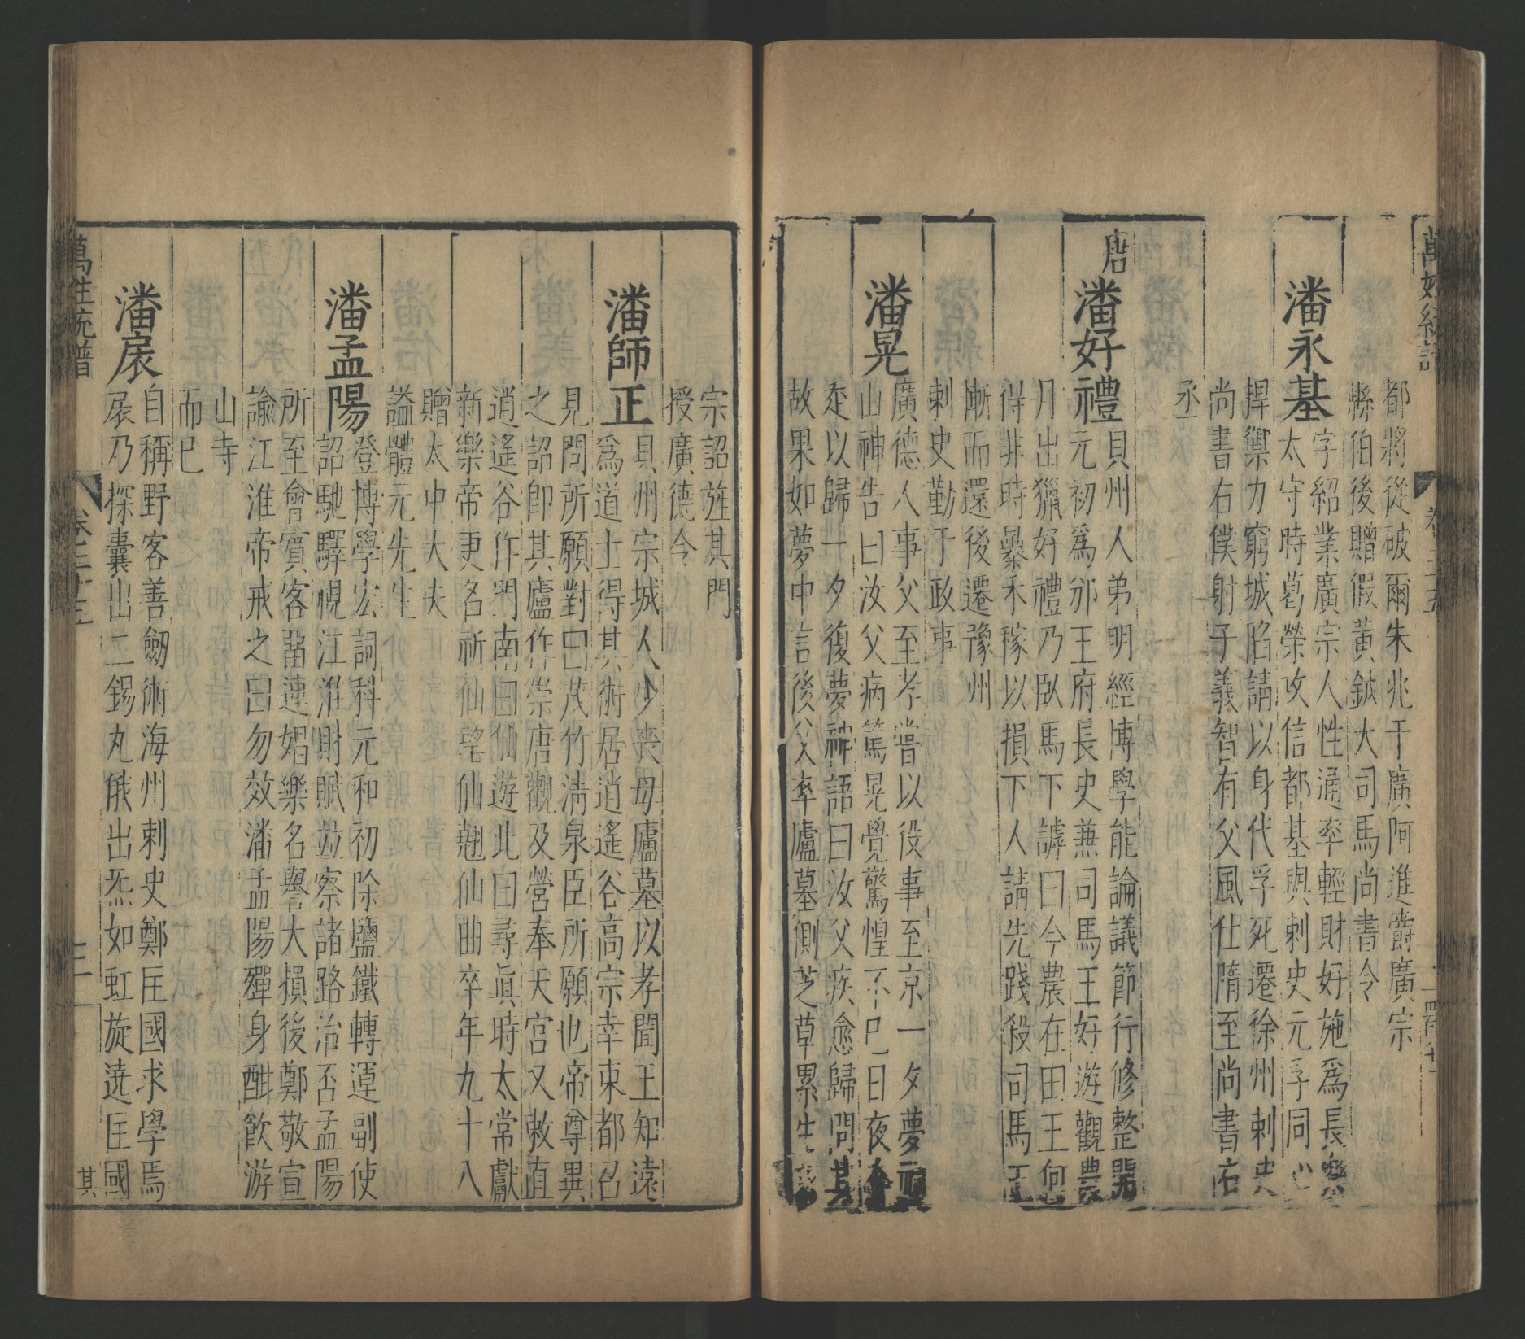 都將從破爾朱兆于廣阿進爵廣宗
縣伯後贈假黃鉞大司馬尚書令
潘永基
字紹業廣宗人性通率輕財好施為長樂
太守時葛榮攻信都基與刺史元孚同心
捍禦力窮城陷請以身代孚死遷徐州刺史
尚書右僕射子義智有父風仕隋至尚書右
丞
唐
潘好禮
貝州人弟明經博學能論議節行修整開
元初為邠王府長史兼司馬王好遊觀農
月出獵好禮乃臥馬下諄曰今農在田王何
得非時暴禾稼以損下人請先踐殺司馬王
慚而還後遷豫州
刺史勤于政事
潘晃
廣德人事父至孝嘗以役事至京一夕夢
山神告曰汝父病篤晃覺驚惶不已日夜
走以歸一夕復夢神語曰汝父疾愈歸問其
故果如夢中言後父卒廬墓側芝草累生
宗詔旌其門
授廣德令
潘師正
貝州宗城人少喪母廬墓以孝聞王知遠
為道士得其術居逍遙谷高宗幸東都召
見問所願對曰茂竹清泉臣所願也帝尊異
之詔即其廬作崇唐觀及營奉天宮又敕直
逍遙谷作門南曰仙遊北曰尋真時太常獻
新樂帝更名祈仙望仙翹仙曲卒年九十八
贈太中大夫
謚體元先生
潘孟陽
登博學宏詞科元和初除鹽鐵轉運副使
詔馳驛視江淮財賦並察諸路治否孟陽
所至會賓客畱連媢樂名譽大損後鄭敬宣
諭江淮帝戒之曰勿效潘孟陽殫身酣飲游
山寺
而已
潘扆
自稱野客善劒術海州刺史鄭匡國求學焉
扆乃探囊出二錫丸俄出炁如虹旋遶匡國
萬姓統譜
卷二十五
三
其